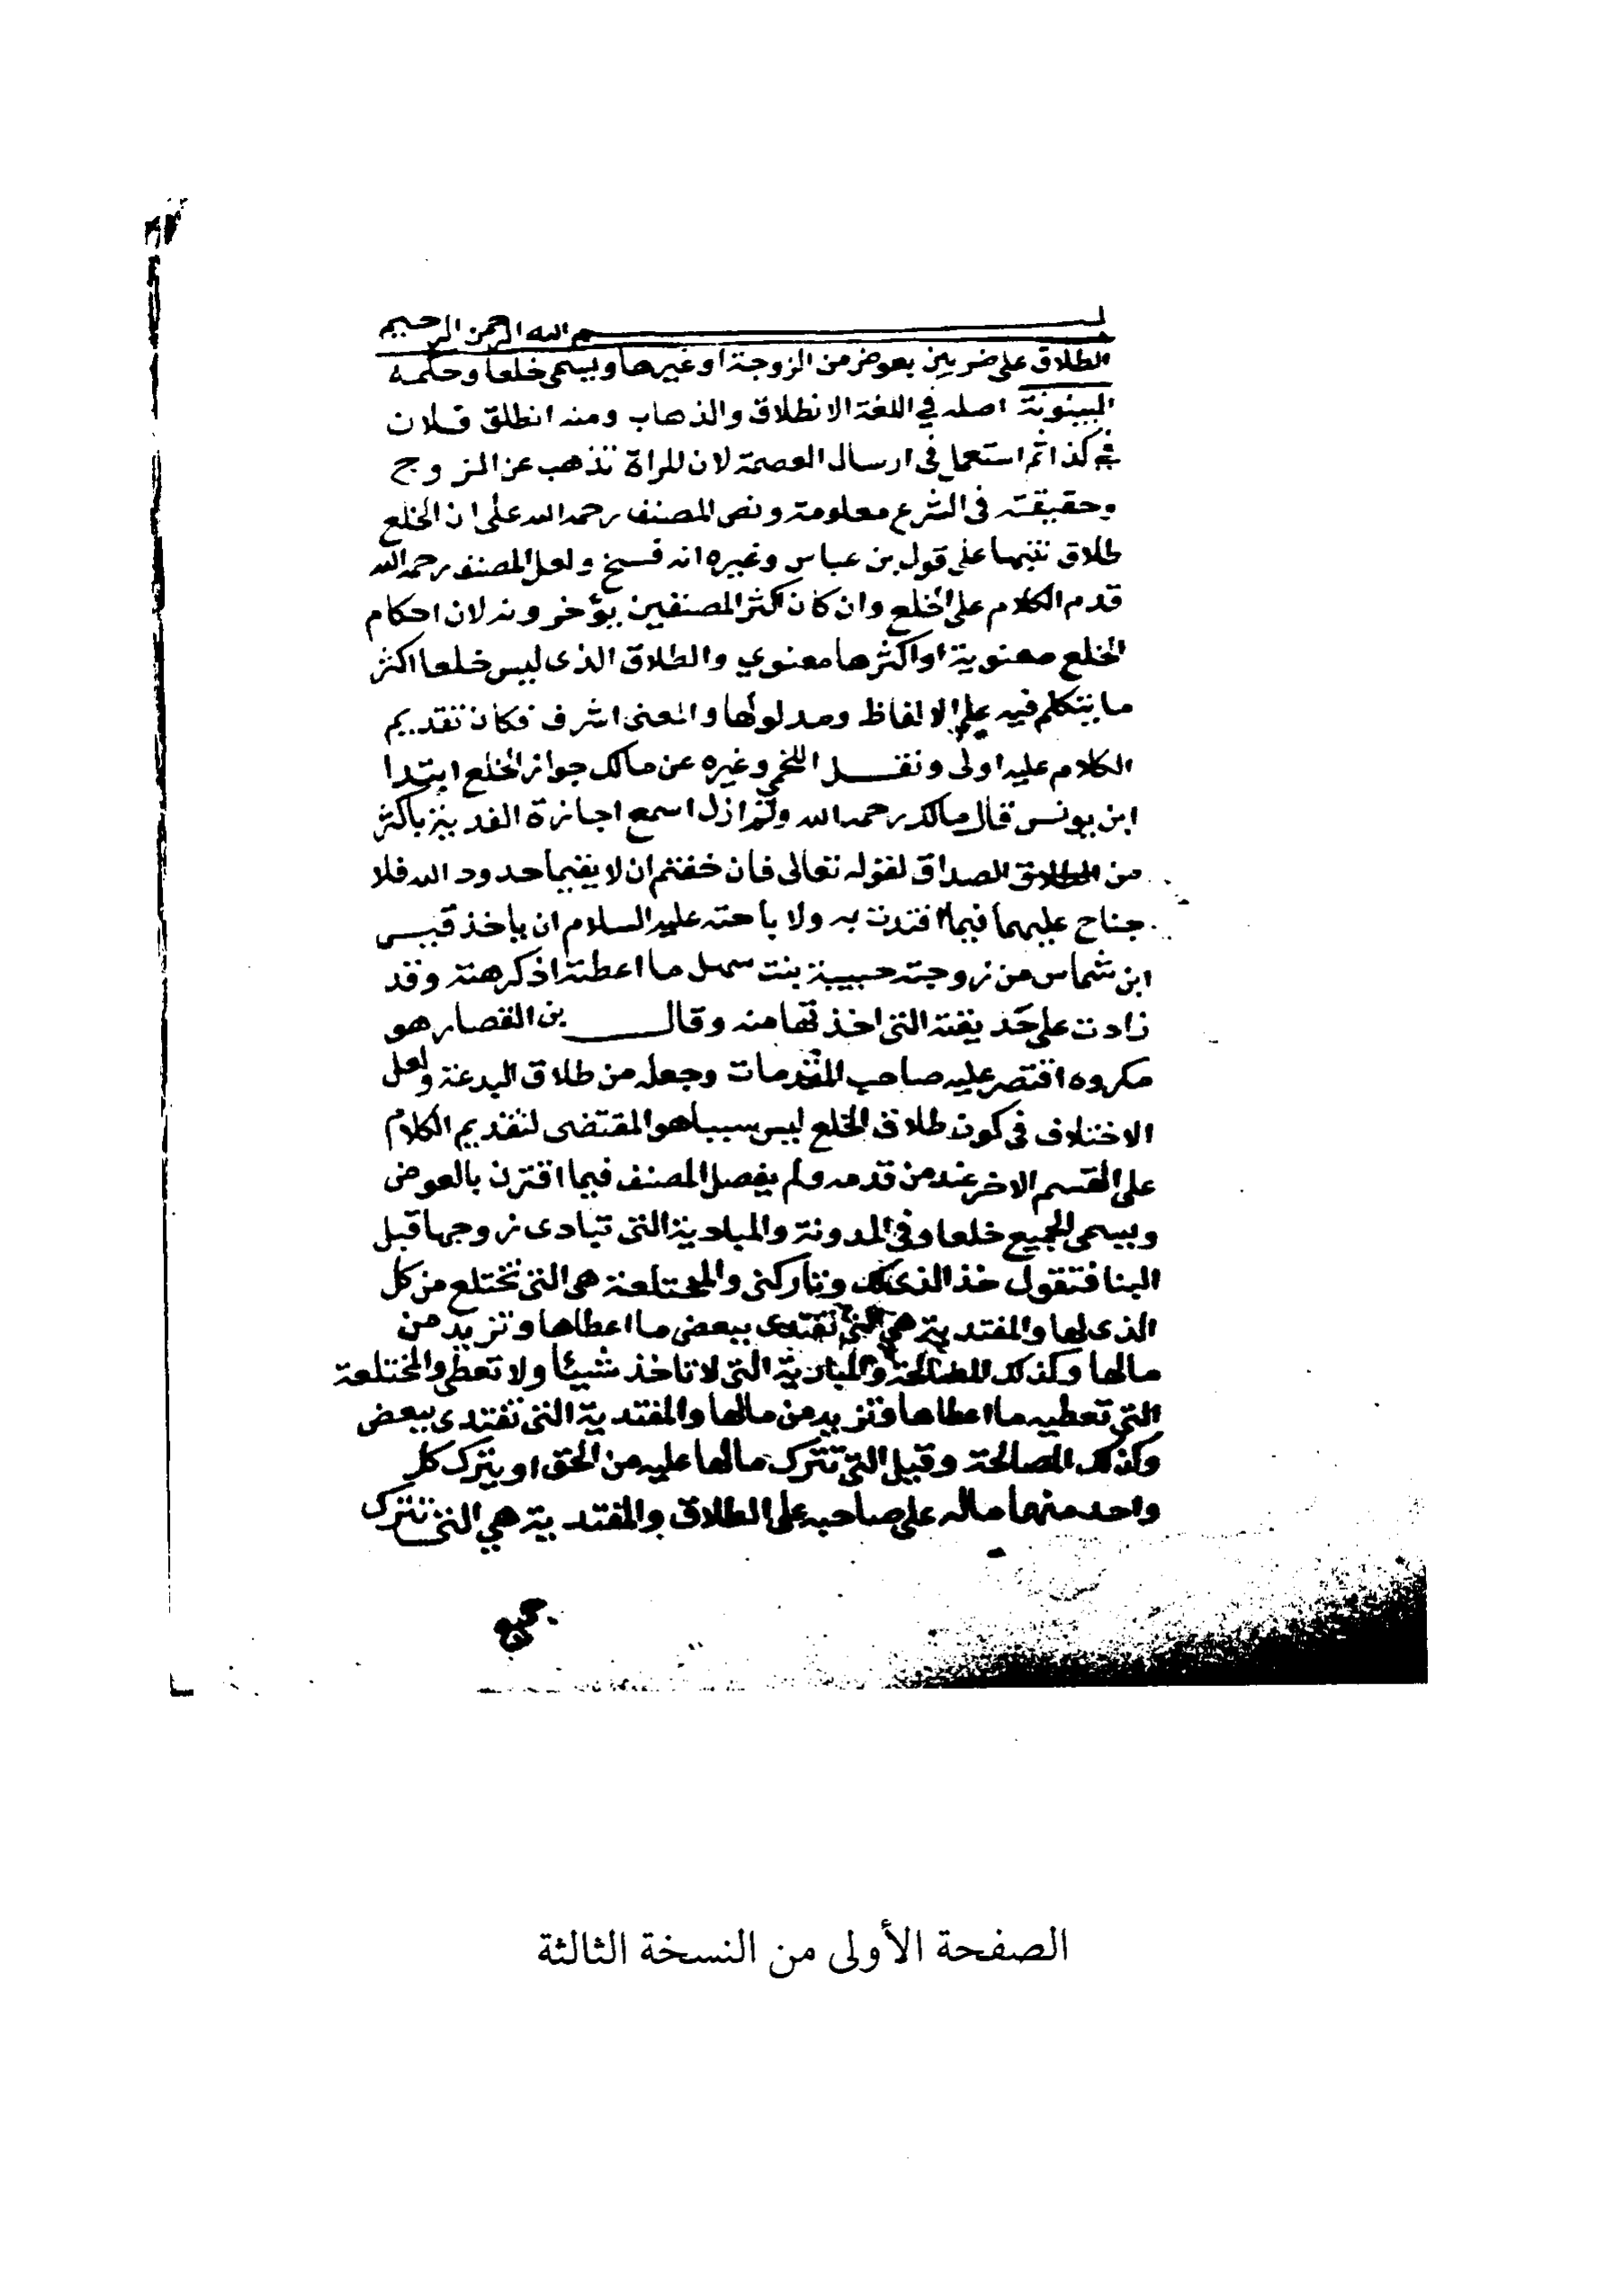 بسم الله الرحمن الرحيم
الطلاق على ضربين بعوض من الزوجة او غيرها ويسمى خلعا وحكمه
البينونة اصله في اللغة الانطلاق والذهاب ومنه انطلق فلان
في كذا ثم استعمل فى ارسال العصمة لان المراة تذهب عن الزوج
وحقيقته فى الشرع معلومة ونص المصنف رحمه الله على ان الخلع
طلاق تنبيها على قول بن عباس وغيره انه فسخ ولعل المصنف رحمه الله
قدم الكلام على الخلع وان كان اكثر المصنفين يؤخرونه لان احكام
الخلع معنوية او اكثرها معنوي والطلاق الذى ليس خلعا اكثر
ما يتكلم فيه على الالفاظ ومدلولها والمعنى اشرف فكان تقديم
الكلام عليه اولى ونقل اللخمي وغيره عن مالك جواز الخلع ابتدا
ابن يونس قال مالك رحمه الله ولم ازل اسمع اجازة الفدية باكثر
من الصداق لقوله تعالى فان خفتم ان لا يقيما حدود الله فلا
جناح عليهما فيما افتدت به ولا باحته عليه السلام ان ياخذ قيس
ابن شماس من زوجته حبيبة بنت سهل ما اعطته اذ كرهته وقد
زادت على حديقته التى اخذتها منه وقال بن القصار هو
مكروه اقتصر عليه صاحب المقدمات وجعله من طلاق البدعة ولعل
الاختلاف فى كونه طلاق الخلع ليس سببا هو المقتضى لتقديم الكلام
على القسم الاخر عند من قدمه ولم يفصل المصنف فيما اقترن بالعوض
ويسمى الجميع خلعا وفى المدونة والمبادية التى تبادى زوجها قبل
البنا فتقول خذ الذى لك وتاركنى والمختلعة هى التى تختلع من كل
الذى لها والمفتدية هي التى تفتدى ببعض ما اعطاها وتزيد من
مالها وكذلك المصالحة والمبادية التى لا تاخذ شيئا ولا تعطى والمختلعة
التى تعطيه ما اعطاها وتزيد من مالها والمفتدية التى تفتدى ببعض
وكذلك المصالحة وقيل التى تترك مالها عليه من الحق او يترك كل
واحد منهما ماله على صاحبه على الطلاق والمفتدية هي التى تترك
جميع
الصفحة الأولى من النسخة الثالثة